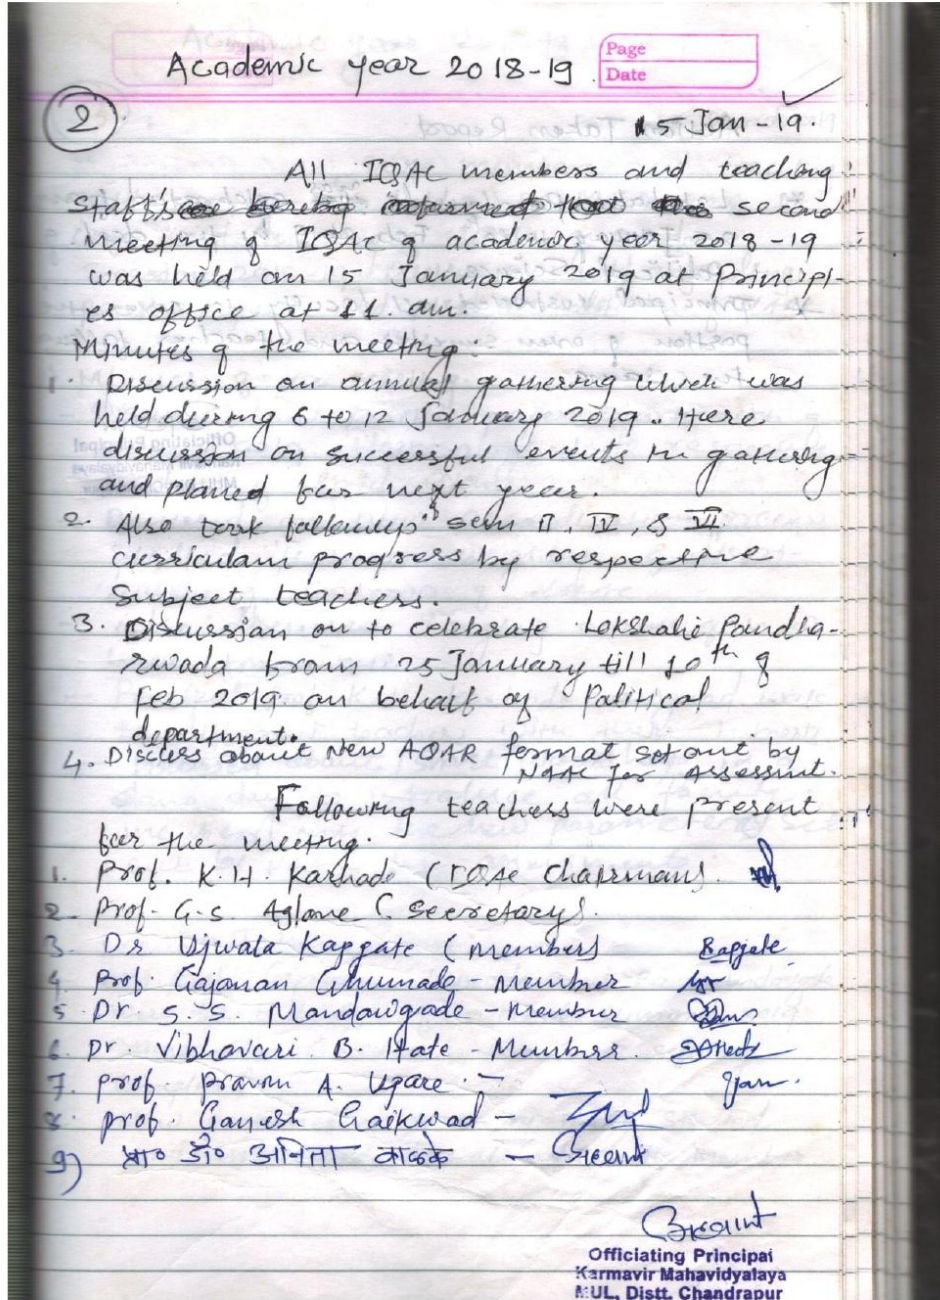 Academic year 2018-19
Page
Date
2
15 Jan-19.
All IQAC members and teaching
staff's second
meeting of IQAC of academic year 2018-19
was held on 15 January 2019 at Principl-
es office at 11. am.
Minutes of the meeting:
1. Discussion on annual gathering which was
held during 6 to 12 January 2019. Here
discussion on successful events in gathering
and planed for next year.
2. Also took followup of sem II, IV, & VI
curriculam progress by respective
Subject teachers.
3. Discussion on to celebrate Lokshahi Pandha-
rwada from 25 January till 10th of
Feb 2019 on behalf of Political
department.
4. Discuss about New AQAR format set out by
NAAC for Assessmt.
Following teachers were present
for the meeting.
1. Prof. K.H. Karhade (IQAC Chairman).
2. Prof. G.S. Aglawe (Secretary).
3. Dr Ujwala Kapgate (member) Kapgate
4. Prof. Gajanan Ghumade - Member
5. Dr. S.S. Mandawgade - Member
6. Dr. Vibhavari B. Hate - Member.
7. Prof. Pravin A. Ugare. -
8. Prof. Ganesh Gaikwad -
9) प्रा० डॉ० अनिता वाळके -
Officiating Principal
Karmavir Mahavidyalaya
MUL, Distt. Chandrapur